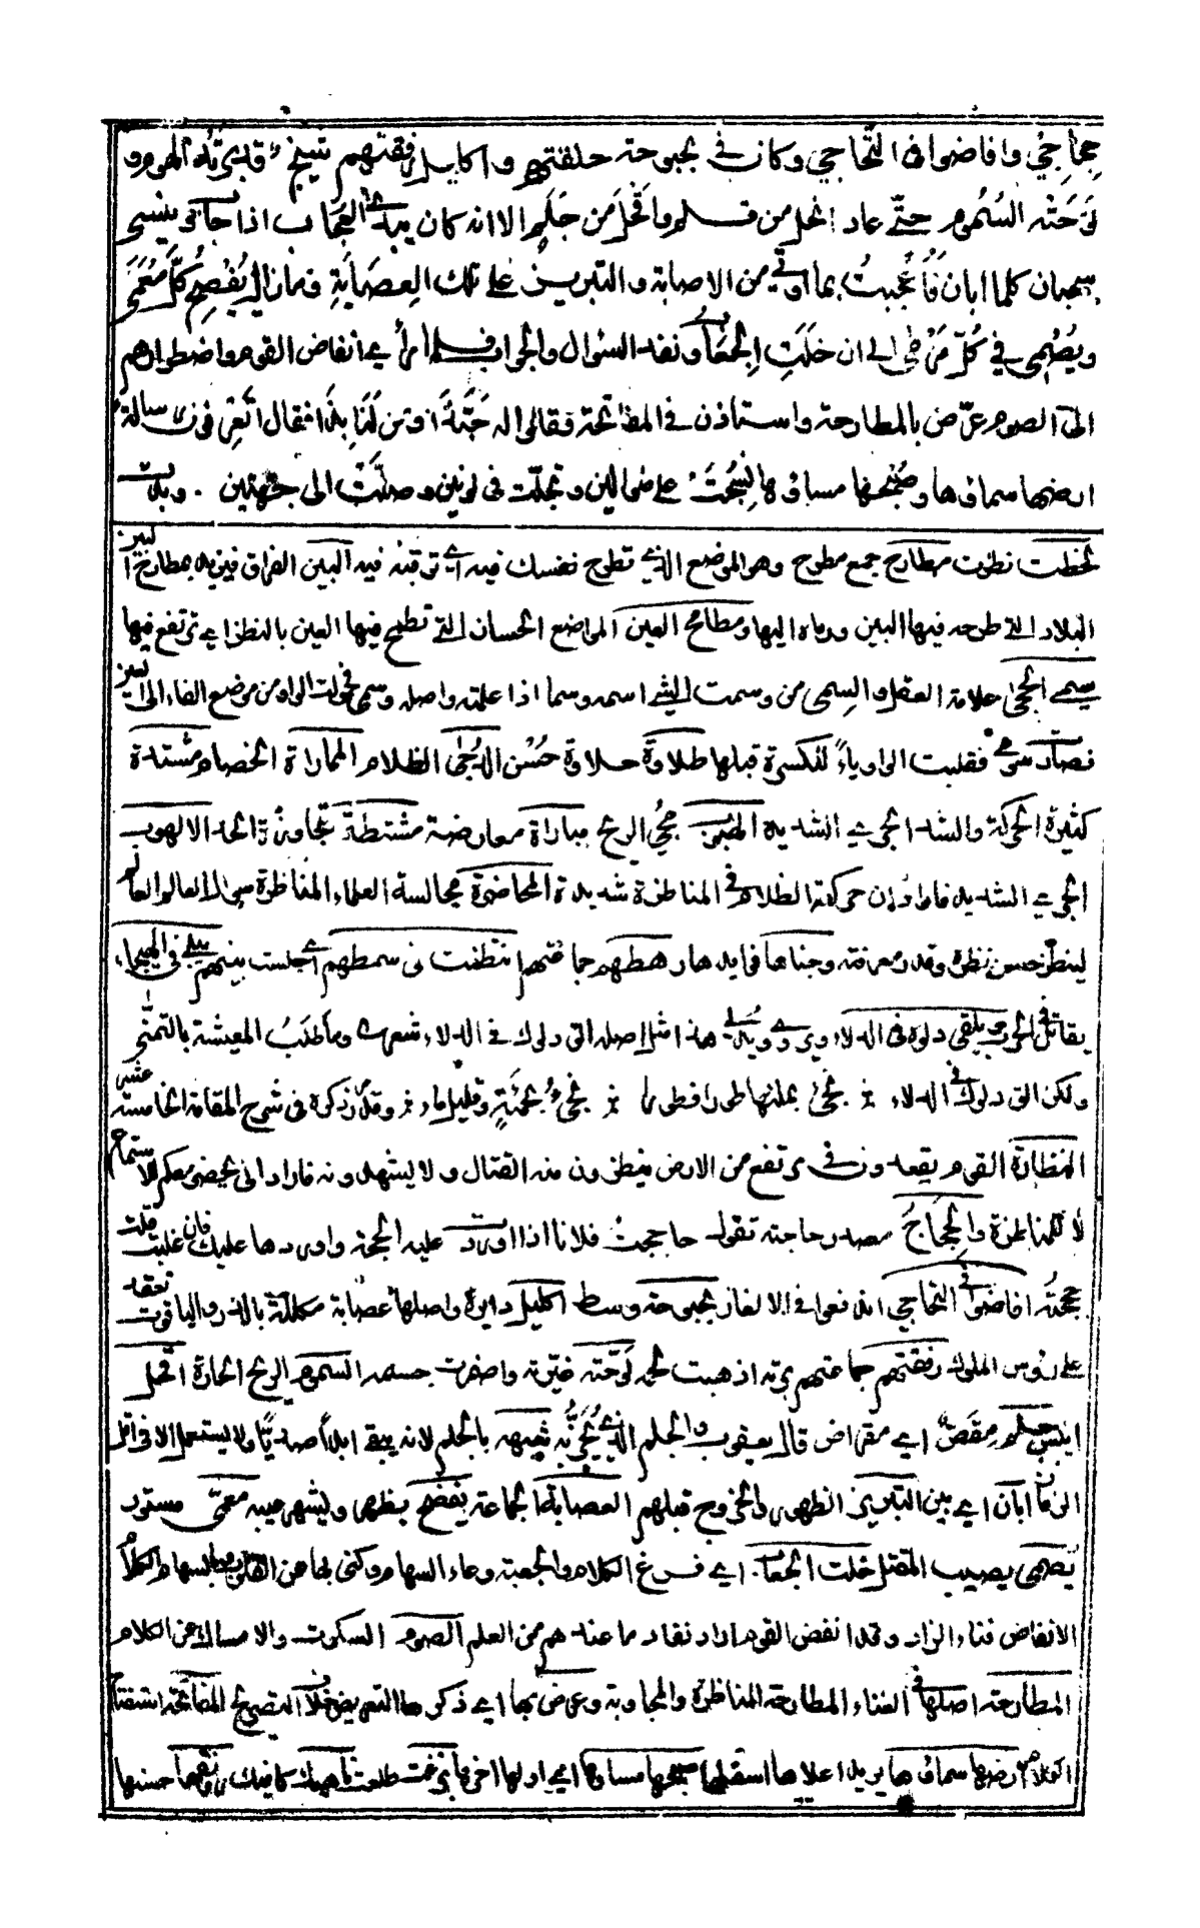 حجاجي وافاضوا في التحاجي وكان في بحبوحة حلقتهم واكليل رفقتهم شيخ قد برته الهموم و
لوحته السموم حتى عاد انحل من قلم واقحل من جلم الا انه كان يبدي العجاب اذا جاب وينسي
سحبان كلما ابان فأعجبت بما اوتي من الاصابة والتبريز على تلك العصابة وما زال يفضح كل معمى
ويصمي في كل مرمى الى ان خلت الجعاب ونفد السؤال والجواب فلما رأى انفاض القوم واضطرارهم
الى الصوم عرض بالمطارحة واستاذن في المفاتحة فقالوا له حبذا ومن لنا بذا فقال اتعرفون رسالة
ارضها سماؤها وصبحها مساؤها نسجت على منوالين وتجلت في لونين وصلت الى جهتين . وبدت
لحظت نظرت مطارح جمع مطرح وهو الموضع الذي تطرح نفسك فيه اي توقبه فيه البين الفراق فيريد بمطارح البين
البلاد التي طرحه فيها البين ورماه اليها ومطامح العين المواضع الحسان التي تطمح فيها العين بالنظر اي ترتفع فيها
سيمى الحجى علامة العقل والسمى من وسمت الشي اسمه وسما اذا علمته واصله وسمى فحولت الواو من موضع الفاء الى العين
فصارت سومى فقلبت الواو ياءً لكسرة قبلها طلاوة حلاوة حسن الدجى الظلام المماراة الخصام مشتدة
كثيرة الحركة والشد الجري الشديد الهبوب مجي الريح مباراة معارضة مشتطة مجاوزة الحد الالهوب
الجري الشديد فاراد ان حركة الظلام في المناظرة شديدة المحاضرة مجالسة العلماء المناظرة سوال العالم العالم
لينظر حسن نظره وقدر معرفته وجناها فوايدها رهطهم جماعتهم انتظمت في سمطهم اي جلست بينهم يبلى في الهيجاء
يقاتل في الحرب ويلقي دلوه في الدلاء ويروى ويدلي هذا مثل اصله الق دلوك في الدلاء شعر وما طلب المعيشة بالتمني
ولكن الق دلوك في الدلاء ٪ تجئ بملئها طورا وطورا ٪ تجئ بحمئة وقليل ماء ٪ وقد ذكره في شرح المقامة الخامسة عشر
النظارة القوم يقعدون في مرتفع من الارض ينظرون منه القتال ولا يشهدونه فاراد اني يحضر معكم للاستماع
لا للمناظرة والحجاج مصدر حاجته تقول حاججت فلانا اذا اوردت عليه الحجة واوردها عليك فان غلبته قلت
حججته افاضوا في التحاجي اندفعوا في الالغاز بحبوحة وسط اكليل دايرة واصلها عصابة مكللة بالدر والياقوت تعقد
على رؤس الملوك رفقتهم جماعتهم برته اذهبت لحمه لوحته غيرته واضمرت جسمه السموم الريح الحارة اقحل
ايبس جلم مقص اي مقراض قال يعقوب والجلم الذي يجز به شبهه بالجلم لانه يبقى ابدا صديا ولا يستعمل الا في اقل
الزمان ابان اي بين التبريز الظهور والخروج قبلهم العصابة الجماعة يفضح يظهر ويشهر عيبه معمى مستور
يصمي يصيب المقتل خلت الجعاب اي فرغ الكلام والجعبة وعاء السهام وكنى بها عن القلوب وبالسهام الكلام
الانفاض فناء الزاد وقد انفض القوم اراد نفاد ما عندهم من العلم الصوم السكوت والامساك عن الكلام
المطارحة اصلها في الغناء المطارحة المناظرة والمجاوبة وعرض بها اي ذكرها التعريض خلاف التصريح المفاتحة استفتاح
الكلام ارضها سماؤها يريد اعلاها اسفلها صبحها مساؤها اي اولها اخرها بزغت طلعت ناهيك كافيك رونقها حسنها